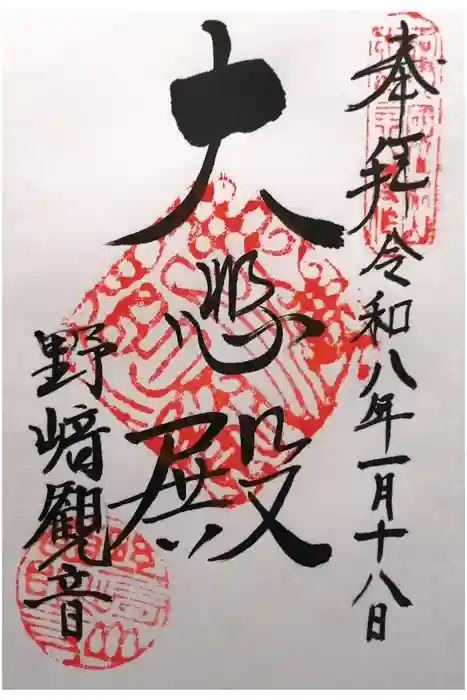 奉拝令和八年一月十八日
大悲殿
野﨑觀音